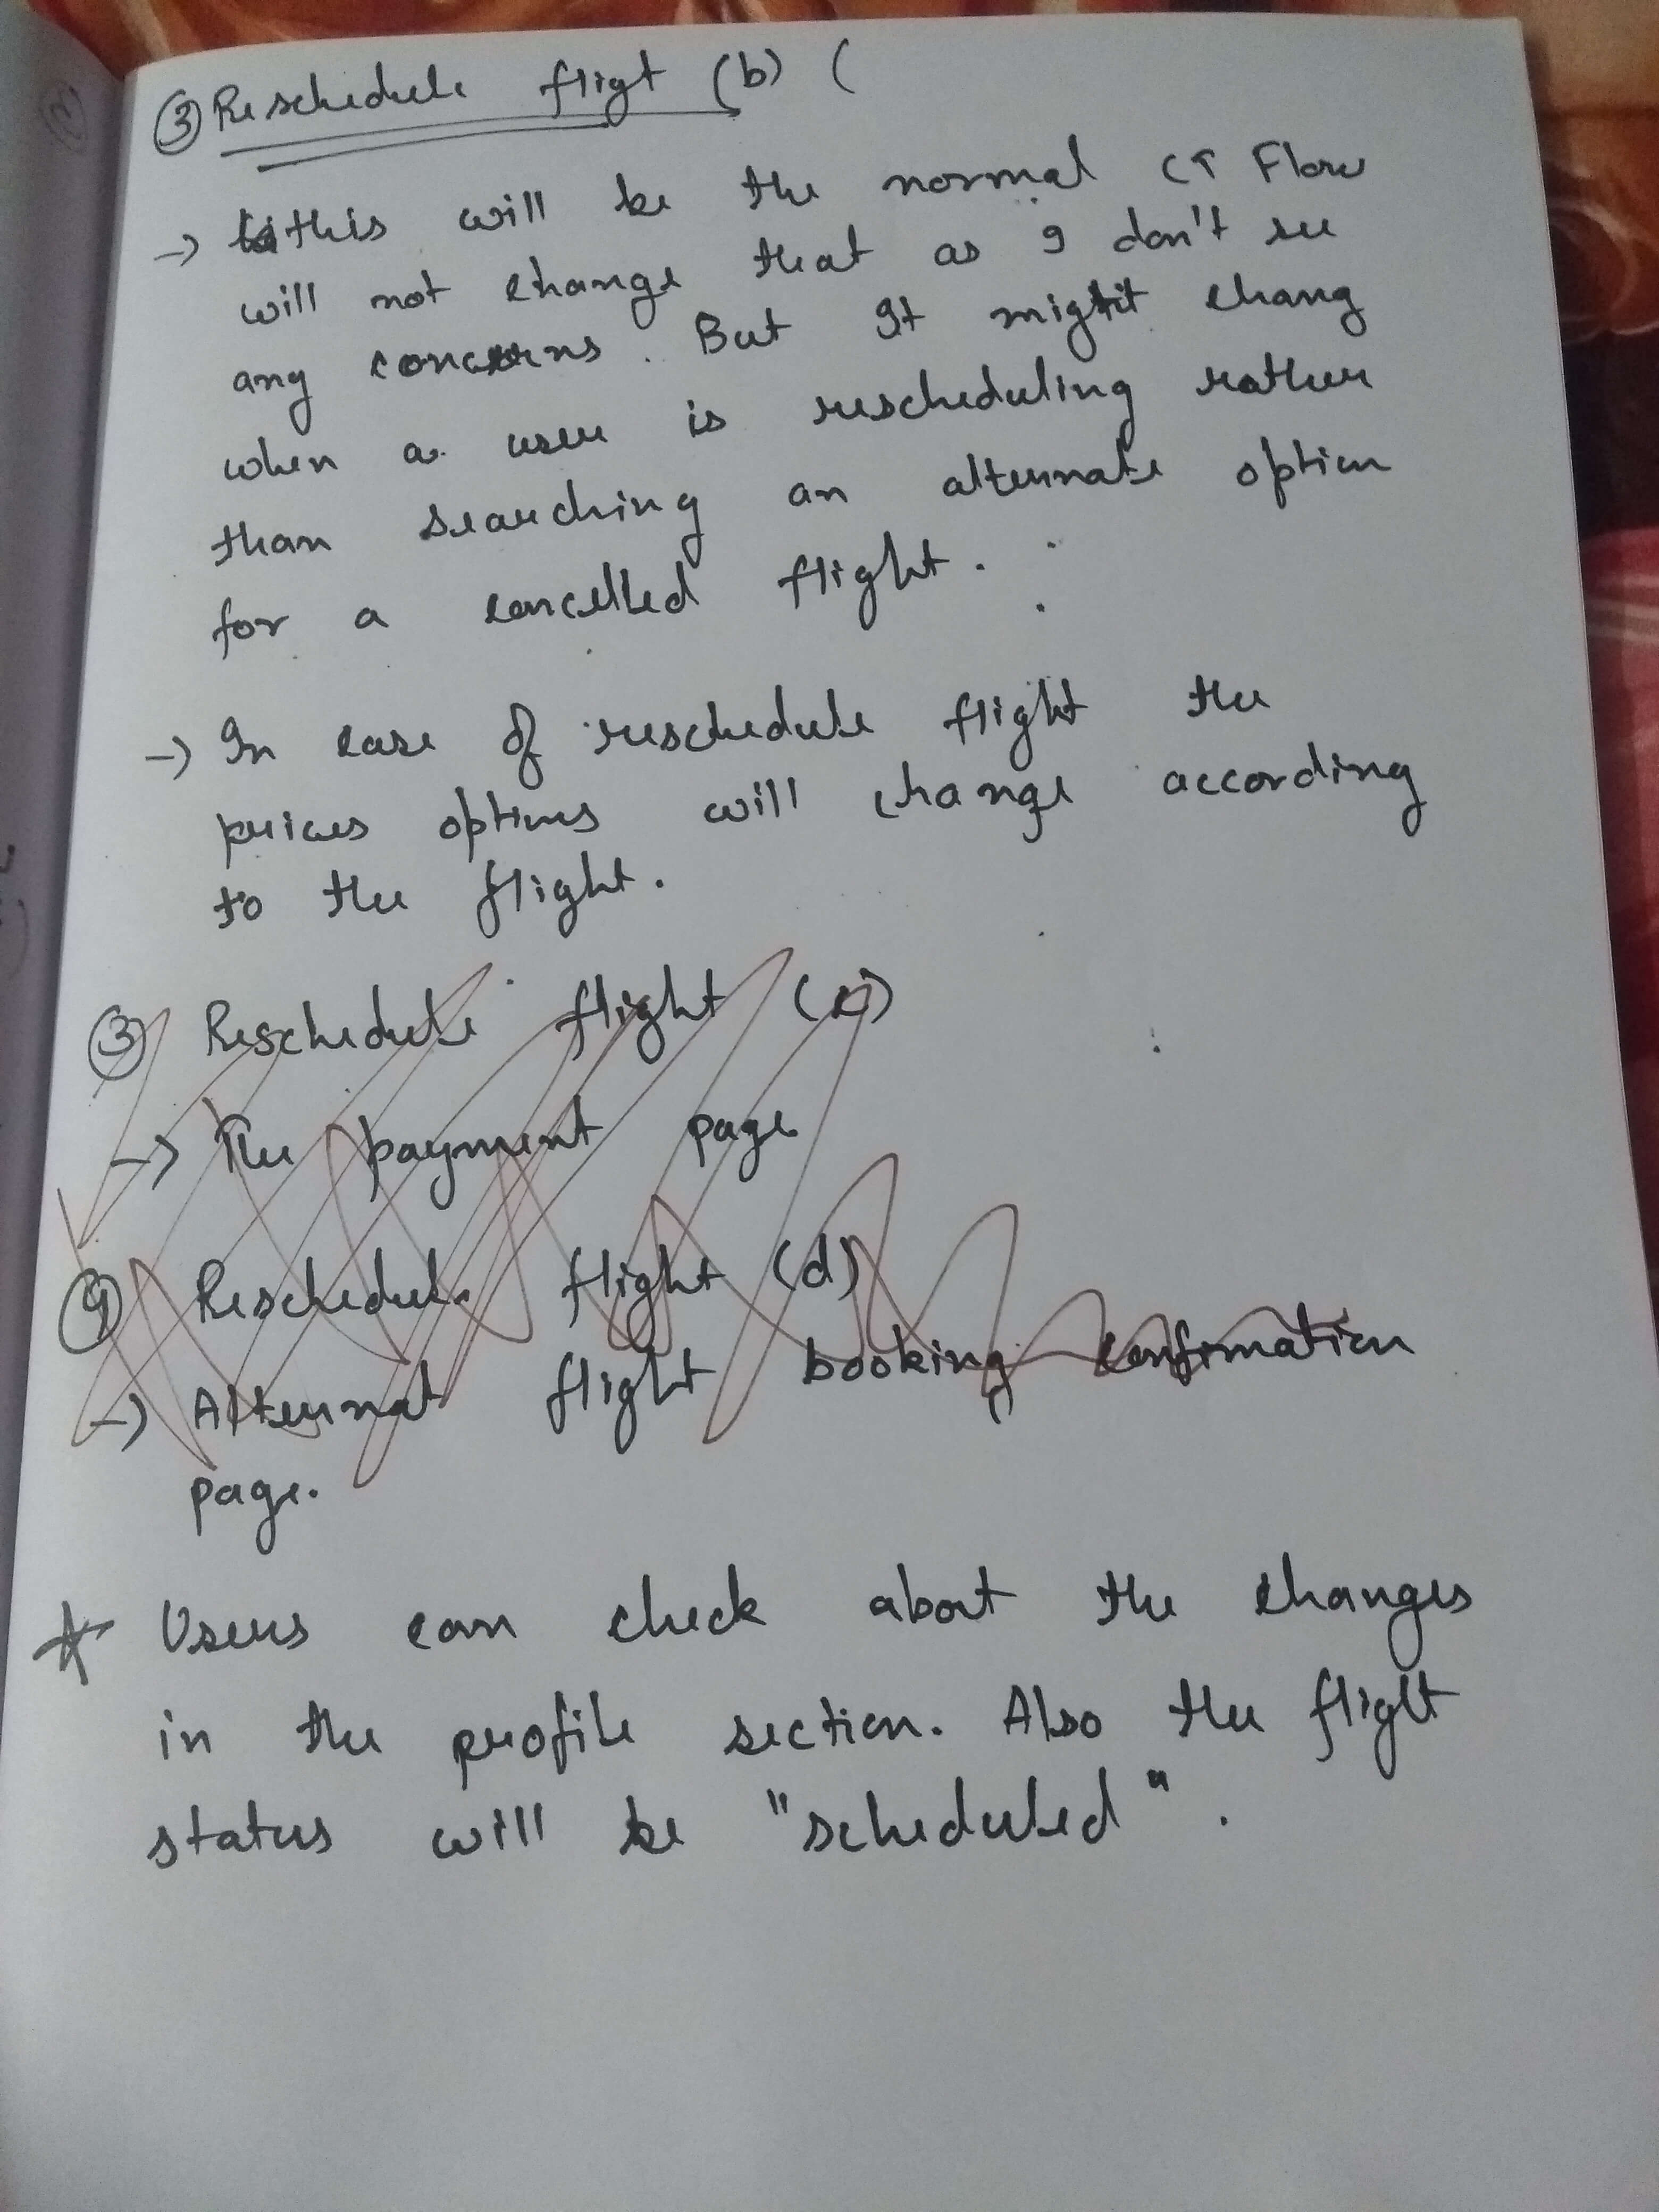 ③ Reschedule fligt (b) (
→ this will be the normal CT Flow
will not change that as I don't see
any concerns. But It might chang
when a user is rescheduling rather
than searching an alternate option
for a cancelled flight.
→ In case of reschedule flight the
prices options will change according
to the flight.
③ Reschedule flight (c)
→ The payment page
④ Reschedule flight (d)
→ Alternat flight booking confirmation
page.
* Users can check about the changes
in the profile section. Also the flight
status will be "scheduled".